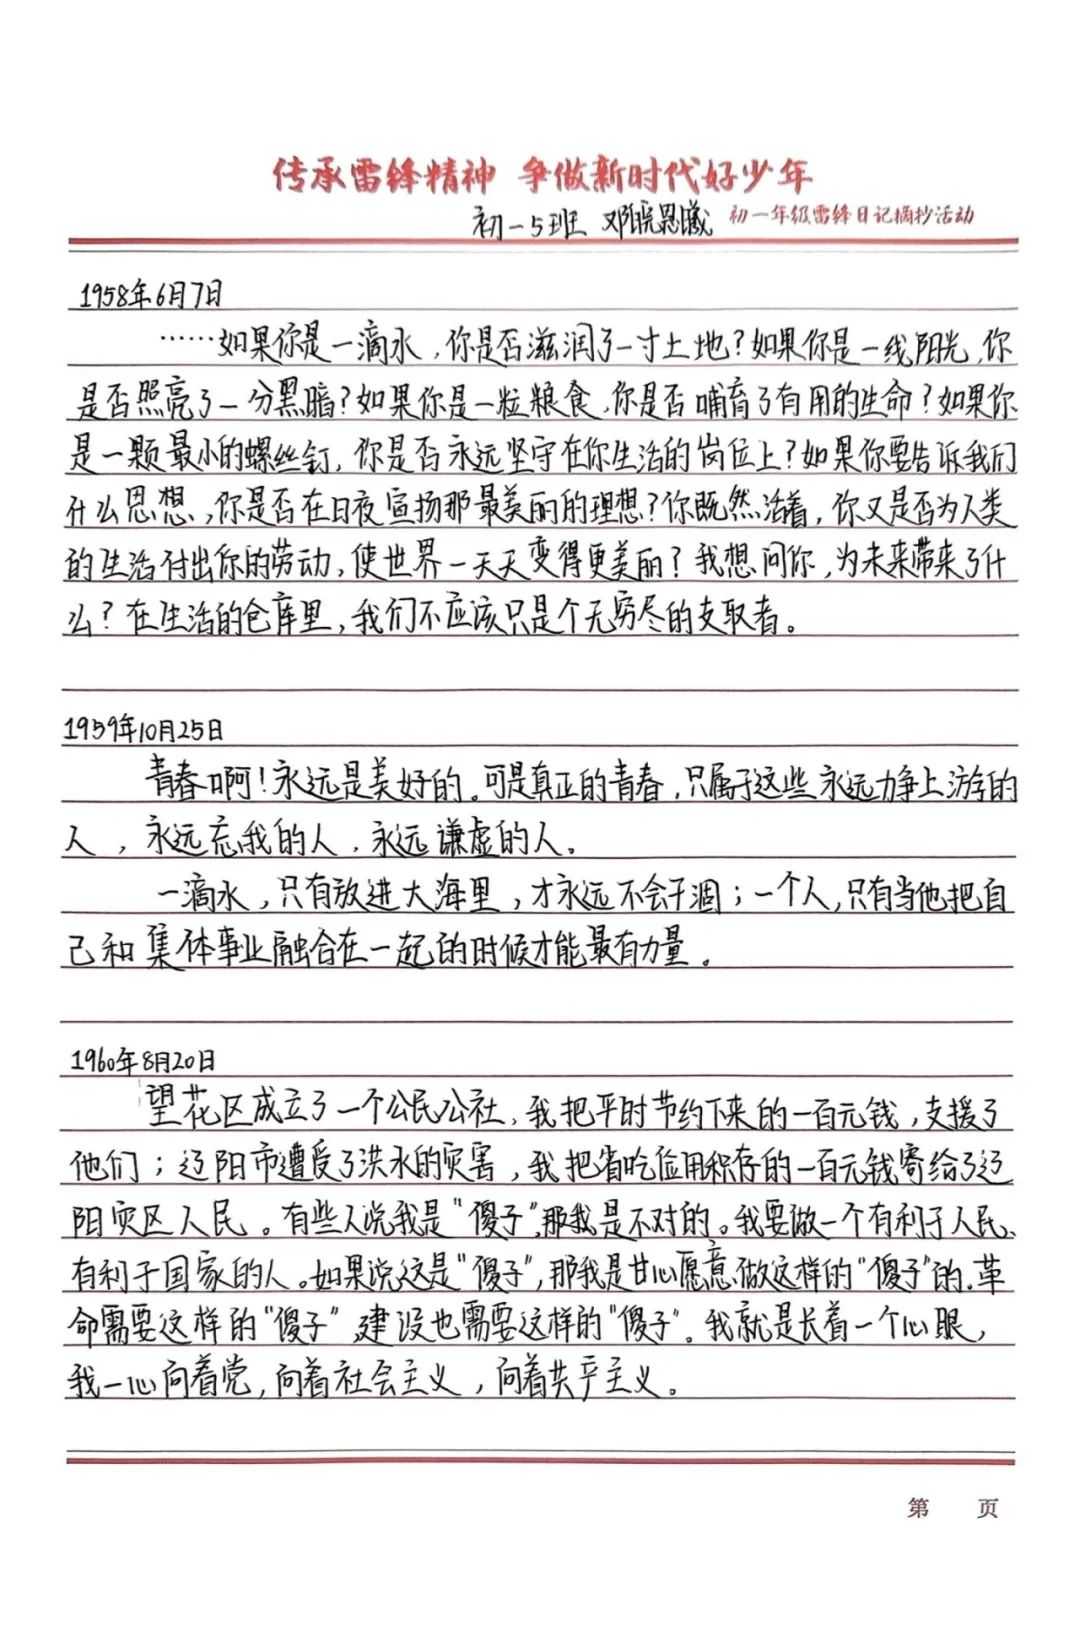 传承雷锋精神 争做新时代好少年
初一5班 邓晓思曦 初一年级雷锋日记摘抄活动
1958年6月7日
……如果你是一滴水，你是否滋润了一寸土地？如果你是一线阳光，你
是否照亮了一分黑暗？如果你是一粒粮食，你是否哺育了有用的生命？如果你
是一颗最小的螺丝钉，你是否永远坚守在你生活的岗位上？如果你要告诉我们
什么思想，你是否在日夜宣扬那最美丽的理想？你既然活着，你又是否为人类
的生活付出你的劳动，使世界一天天变得更美丽？我想问你，为未来带来了什
么？在生活的仓库里，我们不应该只是个无穷尽的支取者。
1959年10月25日
青春啊！永远是美好的。可是真正的青春，只属于这些永远力争上游的
人，永远忘我的人，永远谦虚的人。
一滴水，只有放进大海里，才永远不会干涸；一个人，只有当他把自
己和集体事业融合在一起的时候才能最有力量。
1960年8月20日
望花区成立了一个公民公社，我把平时节约下来的一百元钱，支援了
他们；辽阳市遭受了洪水的灾害，我把省吃俭用积存的一百元钱寄给了辽
阳灾区人民。有些人说我是“傻子”，那我是不对的。我要做一个有利于人民、
有利于国家的人。如果说这是“傻子”，那我是甘心愿意做这样的“傻子”的，革
命需要这样的“傻子”，建设也需要这样的“傻子”。我就是长着一个心眼，
我一心向着党，向着社会主义，向着共产主义。
第 页